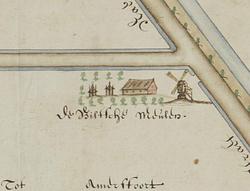 de Biltsche Meulen.
Tot Amersfoort